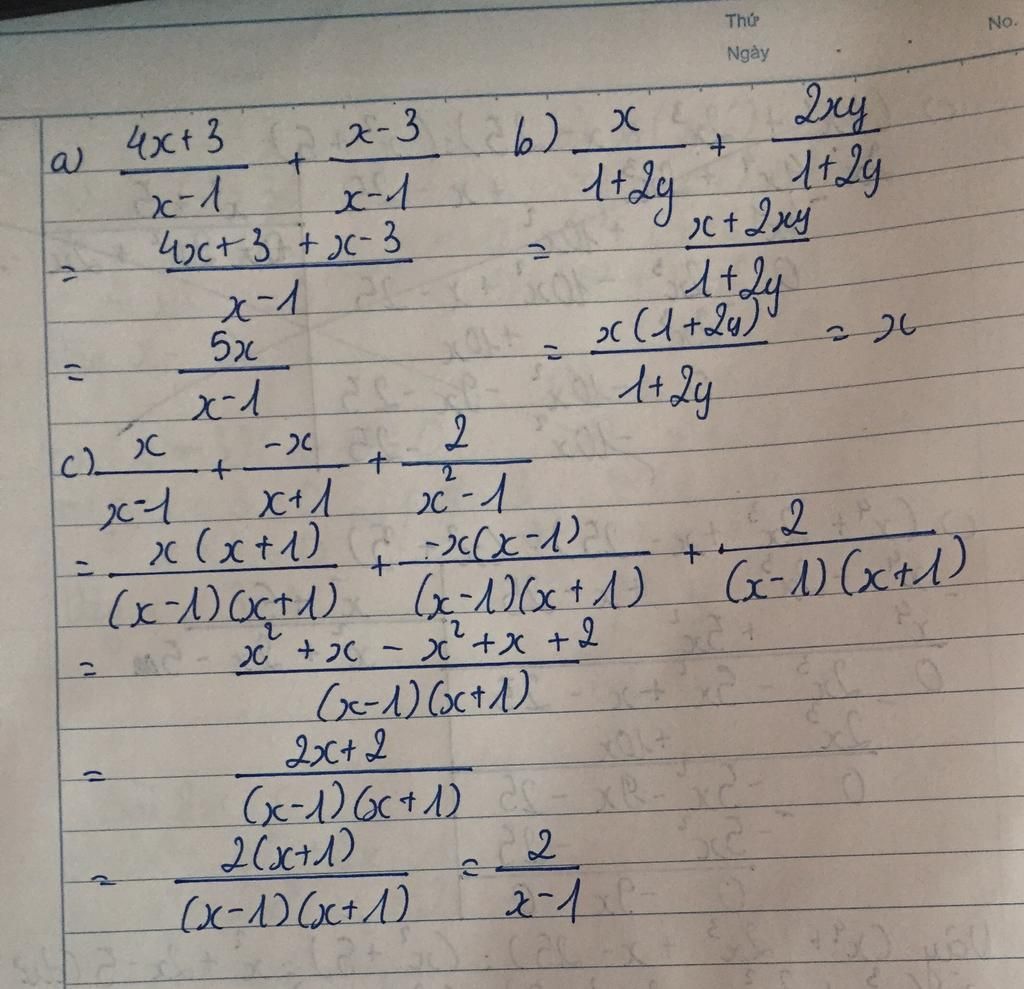 Thứ No.
Ngày
a) \frac{4x+3}{x-1} + \frac{x-3}{x-1} b) \frac{x}{1+2y} + \frac{2xy}{1+2y}
= \frac{4x+3+x-3}{x-1} = \frac{x+2xy}{1+2y}
= \frac{5x}{x-1} = \frac{x(1+2y)}{1+2y} = x
c) \frac{x}{x-1} + \frac{-x}{x+1} + \frac{2}{x^2-1}
= \frac{x(x+1)}{(x-1)(x+1)} + \frac{-x(x-1)}{(x-1)(x+1)} + \frac{2}{(x-1)(x+1)}
= \frac{x^2+x-x^2+x+2}{(x-1)(x+1)}
= \frac{2x+2}{(x-1)(x+1)}
= \frac{2(x+1)}{(x-1)(x+1)} = \frac{2}{x-1}